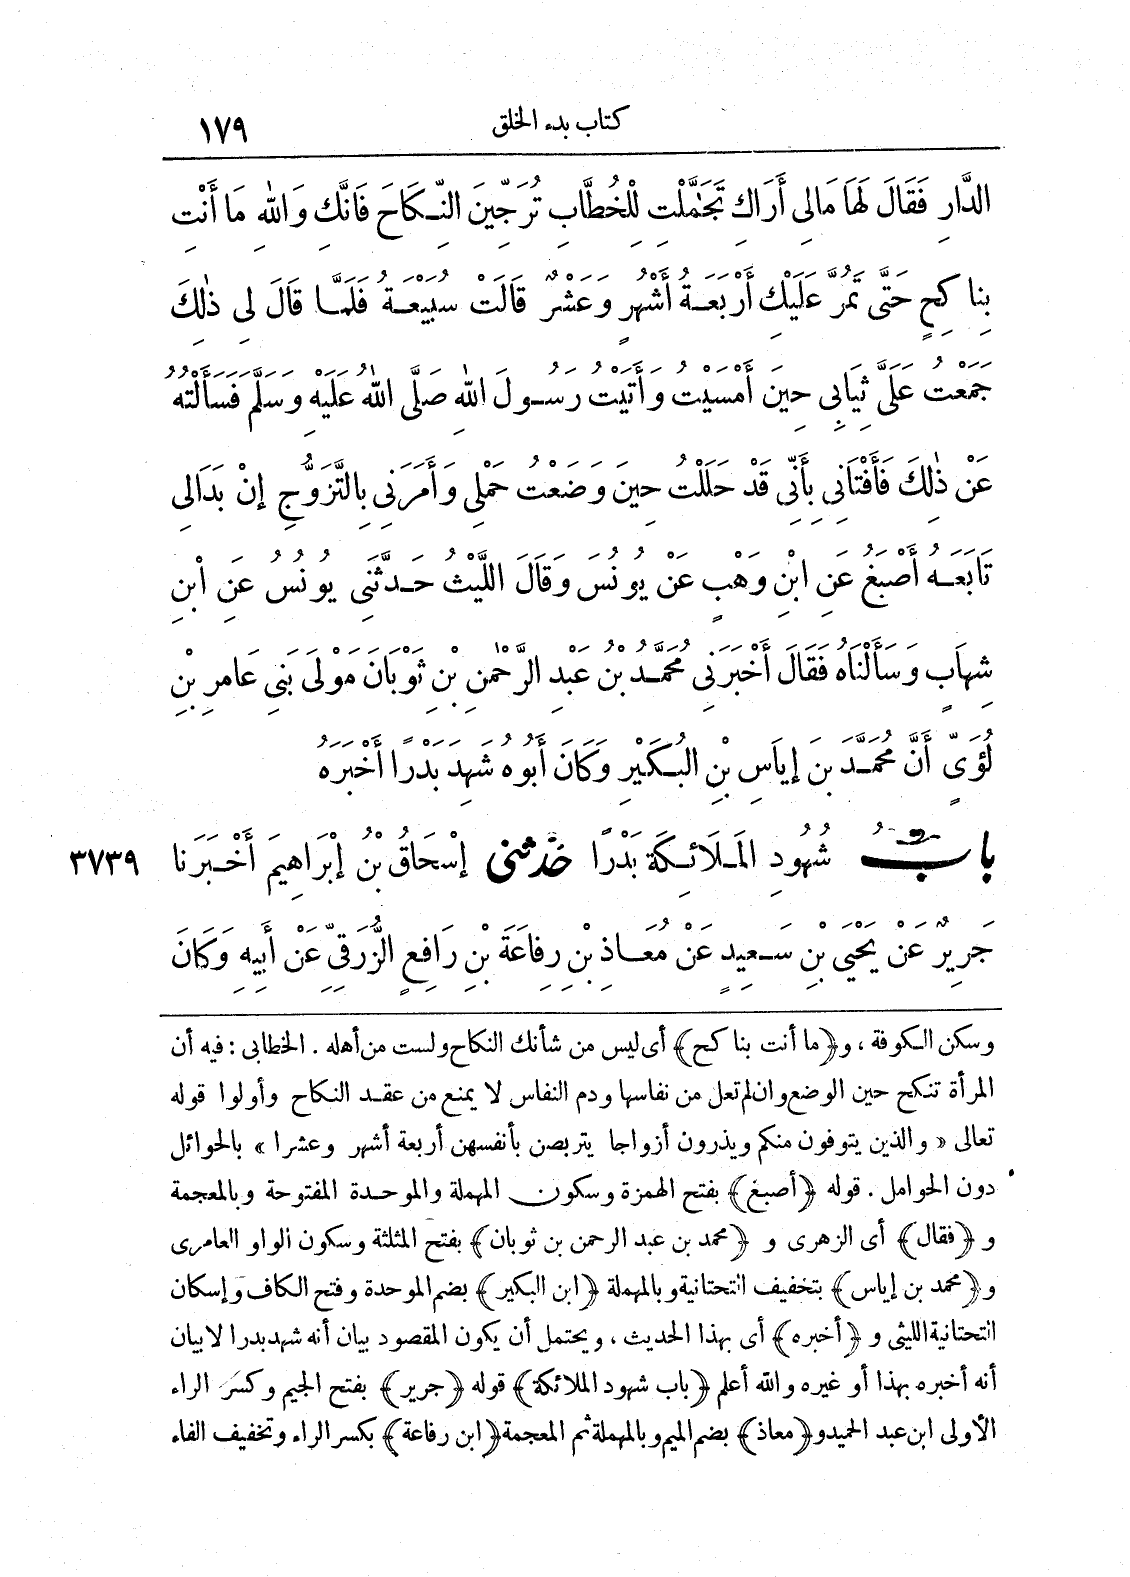 كتاب بدء الخلق ١٧٩
الدَّارِ فَقَالَ لَهَا مَالِى أَرَاكِ تَجَمَّلْتِ لِلْخُطَّابِ تُرَجِّينَ النِّكَاحَ فَانَّكِ وَاللهِ مَا أَنْتِ
بِنَاكِحٍ حَتَّى تَمُرَّ عَلَيْكِ أَرْبَعَةُ أَشْهُرٍ وَعَشْرٌ قَالَتْ سُبَيْعَةُ فَلَمَّا قَالَ لِى ذٰلِكَ
جَمَعْتُ عَلَىَّ ثِيَابِى حِينَ أَمْسَيْتُ وَأَتَيْتُ رَسُولَ اللهِ صَلَّى اللهُ عَلَيْهِ وَسَلَّمَ فَسَأَلْتُهُ
عَنْ ذٰلِكَ فَأَفْتَانِى بِأَنِّى قَدْ حَلَلْتُ حِينَ وَضَعْتُ حَمْلِى وَأَمَرَنِى بِالتَّزَوُّجِ إِنْ بَدَالِى
تَابَعَهُ أَصْبَغُ عَنِ ابْنِ وَهْبٍ عَنْ يُونُسَ وَقَالَ اللَّيْثُ حَدَّثَنِى يُونُسُ عَنِ ابْنِ
شِهَابٍ وَسَأَلْنَاهُ فَقَالَ أَخْبَرَنِى مُحَمَّدُ بْنُ عَبْدِ الرَّحْمٰنِ بْنِ ثَوْبَانَ مَوْلَى بَنِى عَامِرِ بْنِ
لُؤَىٍّ أَنَّ مُحَمَّدَ بنَ إِيَاسِ بْنِ البُكَيْرِ وَكَانَ أَبُوهُ شَهِدَ بَدْرًا أَخْبَرَهُ
بابُ شُهُودِ المَلَائِكَةِ بَدْرًا حَدَّثَنِى إِسْحَاقُ بْنُ إِبْرَاهِيمَ أَخْبَرَنَا ٣٧٣٩
جَرِيرٌ عَنْ يَحْيَى بْنِ سَعِيدٍ عَنْ مُعَاذِ بْنِ رِفَاعَةَ بْنِ رَافِعٍ الزُّرَقِىِّ عَنْ أَبِيهِ وَكَانَ
وسكن الكوفة ، و﴿ما أنت بناكح﴾ أى ليس من شأنك النكاح ولست من أهله . الخطابى : فيه أن
المرأة تنكح حين الوضع وان لم تعل من نفاسها ودم النفاس لا يمنع من عقد النكاح وأولوا قوله
تعالى « والذين يتوفون منكم ويذرون أزواجا يتربصن بأنفسهن أربعة أشهر وعشرا » بالحوائل
دون الحوامل . قوله ﴿أصبغ﴾ بفتح الهمزة وسكون المهملة والموحدة المفتوحة وبالمعجمة
و ﴿فقال﴾ أى الزهرى و ﴿محمد بن عبد الرحمن بن ثوبان﴾ بفتح المثلثة وسكون الواو العامرى
و﴿محمد بن إياس﴾ بتخفيف التحتانية وبالمهملة ﴿ابن البكير﴾ بضم الموحدة وفتح الكاف وإسكان
التحتانية الليثى و ﴿أخبره﴾ أى بهذا الحديث ، ويحتمل أن يكون المقصود بيان أنه شهد بدرا لا بيان
أنه أخبره بهذا أو غيره والله أعلم ﴿باب شهود الملائكة﴾ قوله ﴿جرير﴾ بفتح الجيم وكسر الراء
الأولى ابن عبد الحميد و﴿معاذ﴾ بضم الميم وبالمهملة ثم المعجمة ﴿ابن رفاعة﴾ بكسر الراء وتخفيف الفاء